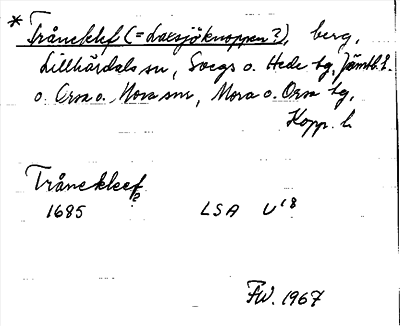 * Tråncklef (= Laxsjöknoppen?), berg,
Lillhärdals sn, Svegs o. Hede tg, Jämtl. l.
o. Orsa o. Mora snr, Mora o. Orsa tg,
Kopp. l.
Trånckleef?
1685 LSA U¹8
FW. 1967